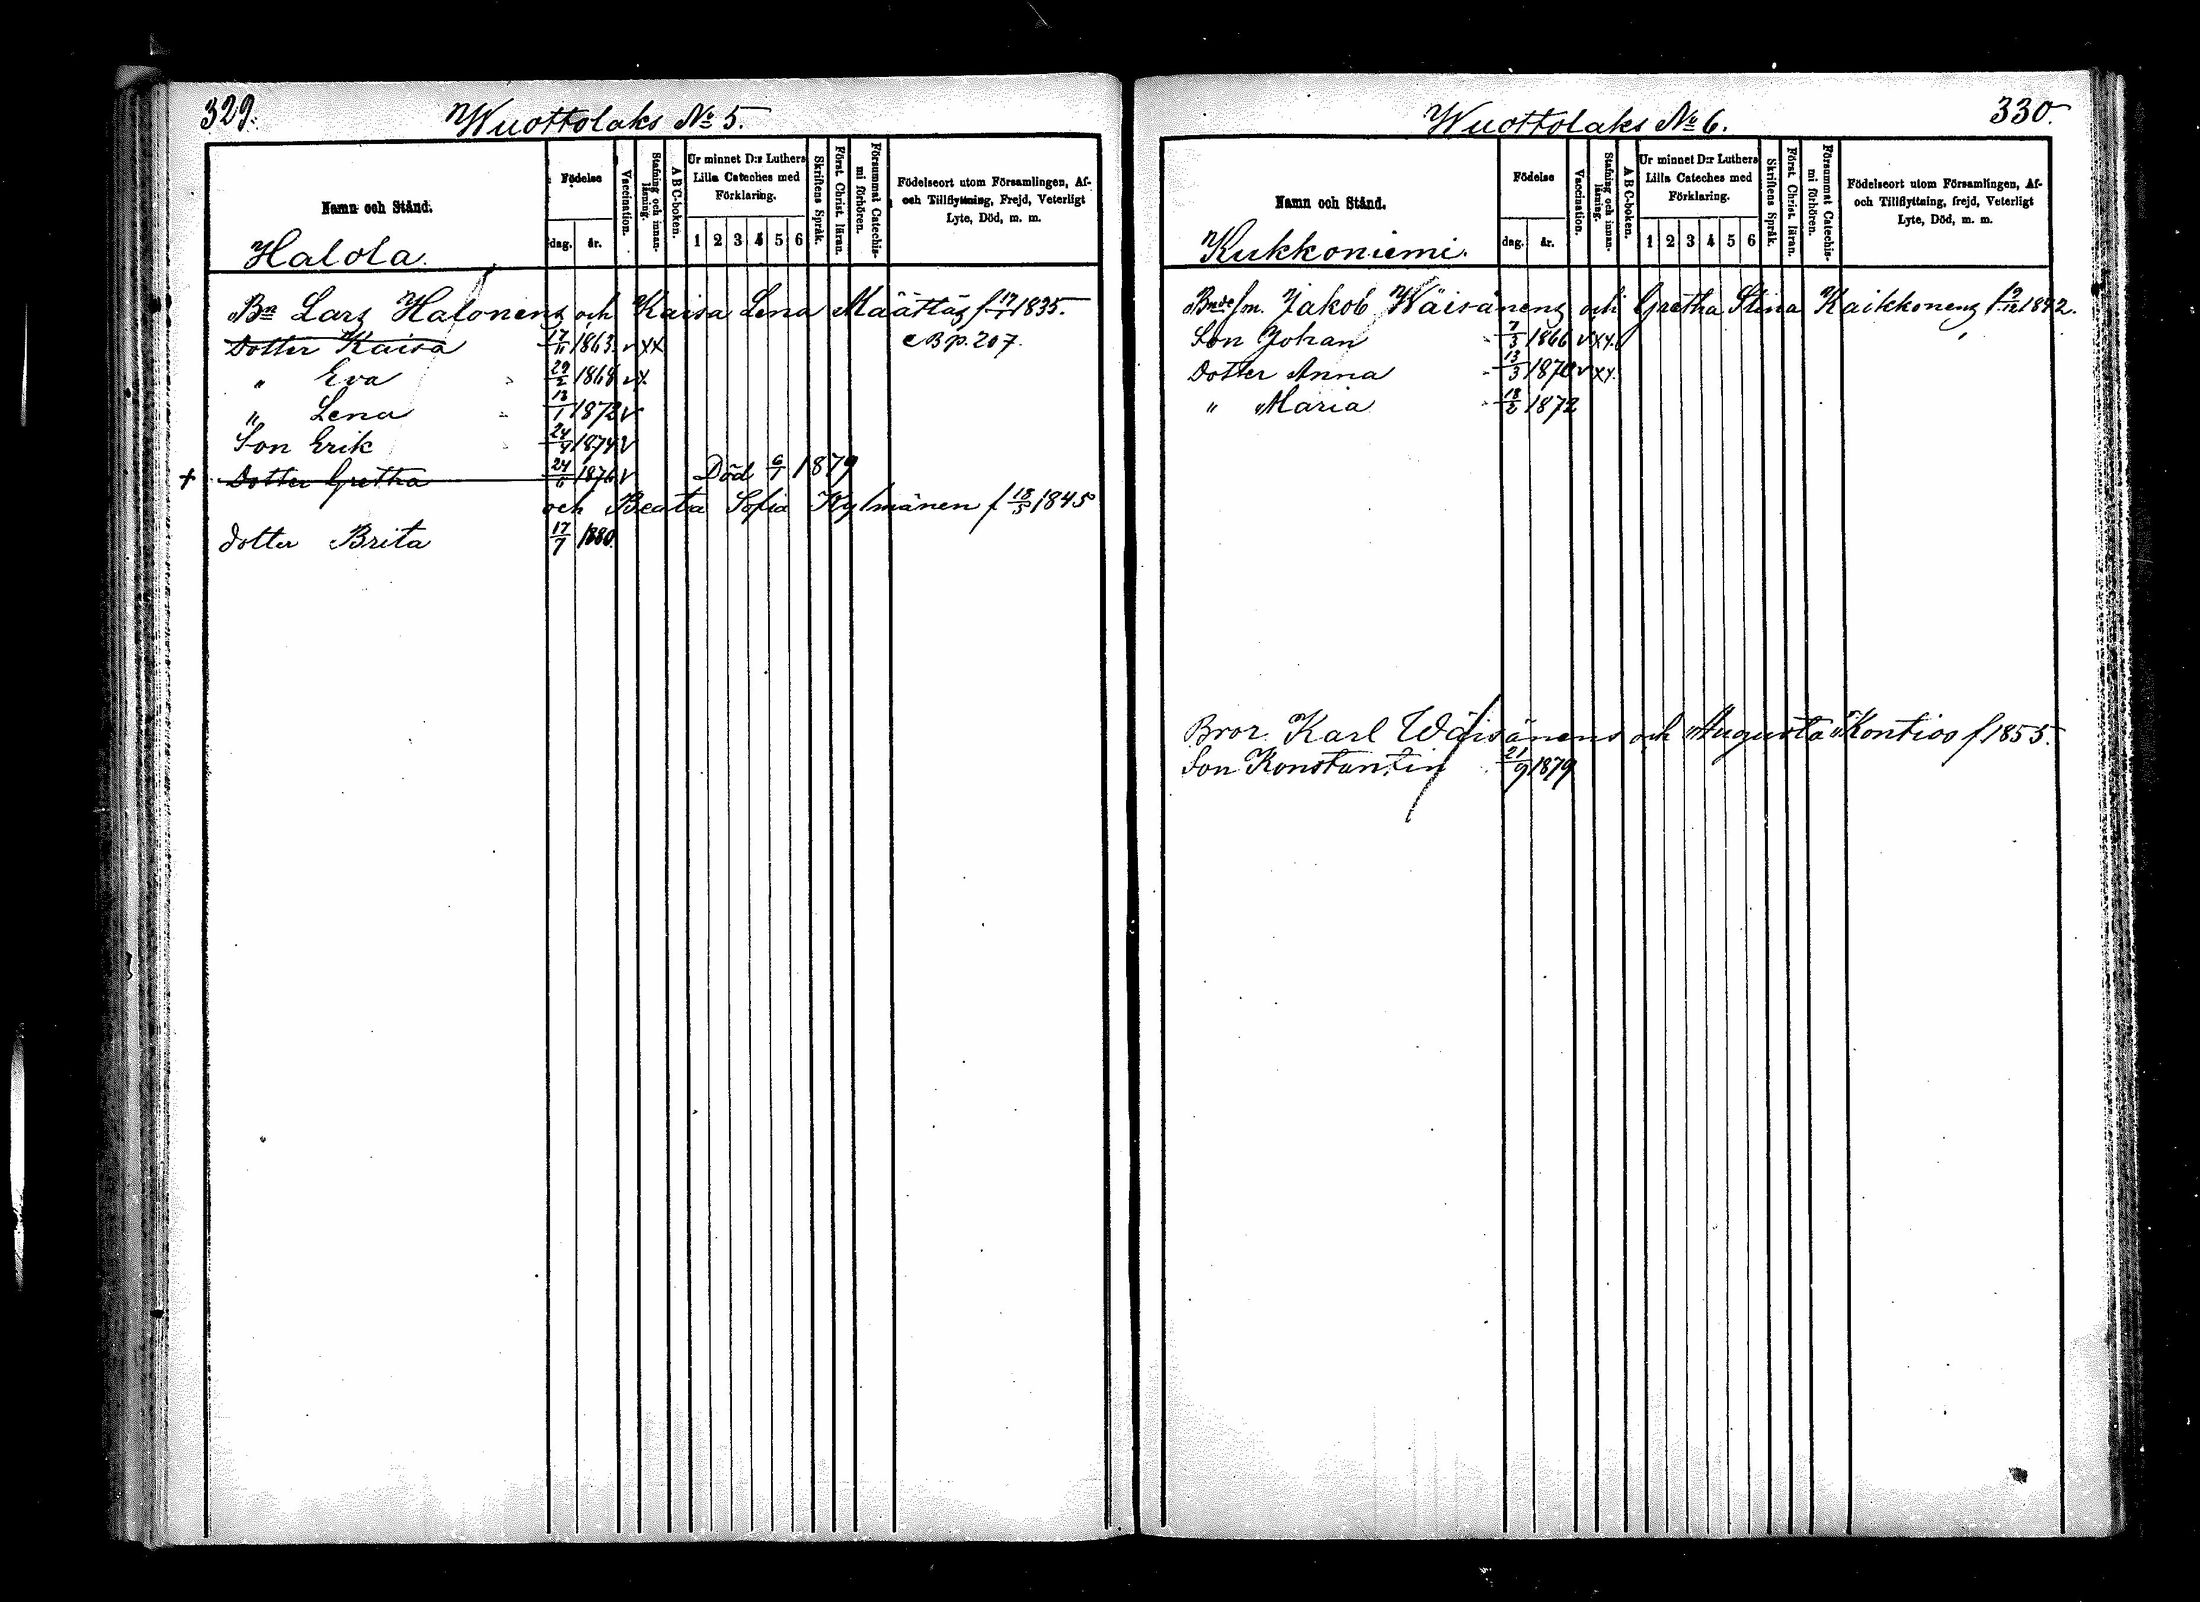 329.
Wuottolaks № 5.
Namn och Stånd.
Födelse
dag.
år.
Vaccination.
Stafning och innan-
läsning.
A B C-boken.
Ur minnet D:r Luthers
Lilla Cateches med
Förklaring.
1 2 3 4 5 6
Skriftens Språk.
Först. Christ. läran.
Försummat Catechis-
mi förhören.
Födelseort utom Församlingen, Af-
och Tillflyttning, Frejd, Veterligt
Lyte, Död, m. m.
Halola.
Bn Lars Halonens och Kaisa Lena Määttäs f 17/1 1835.
Dotter Kaisa 17/11 1863. v xx c B p. 207.
" Eva 29/2 1868 v x.
" Lena 13/1 1872 v
Son Erik 24/4 1874 v
+ Dotter Gretha 24/6 1876 v Död 6/1 1879
och Beata Sofia Kylmänen f 18/5 1845
dotter Brita 17/7 1880.
330.
Wuottolaks № 6.
Namn och Stånd.
Födelse
dag.
år.
Vaccination.
Stafning och innan-
läsning.
A B C-boken.
Ur minnet D:r Luthers
Lilla Cateches med
Förklaring.
1 2 3 4 5 6
Skriftens Språk.
Först. Christ. läran.
Försummat Catechis-
mi förhören.
Födelseort utom Församlingen, Af-
och Tillflyttning, frejd, Veterligt
Lyte, Död, m. m.
Kukkoniemi.
Jakob Wäisänens och Gretha Stina Kaikkonens f 9/12 1842.
Son Johan 7/3 1866 v xx.
Dotter Anna 13/3 1870 v xx.
" Maria 18/2 1872
Bror. Karl Wäisänens och Augusta Kontios f 1855.
Son Konstantin 21/9 1879